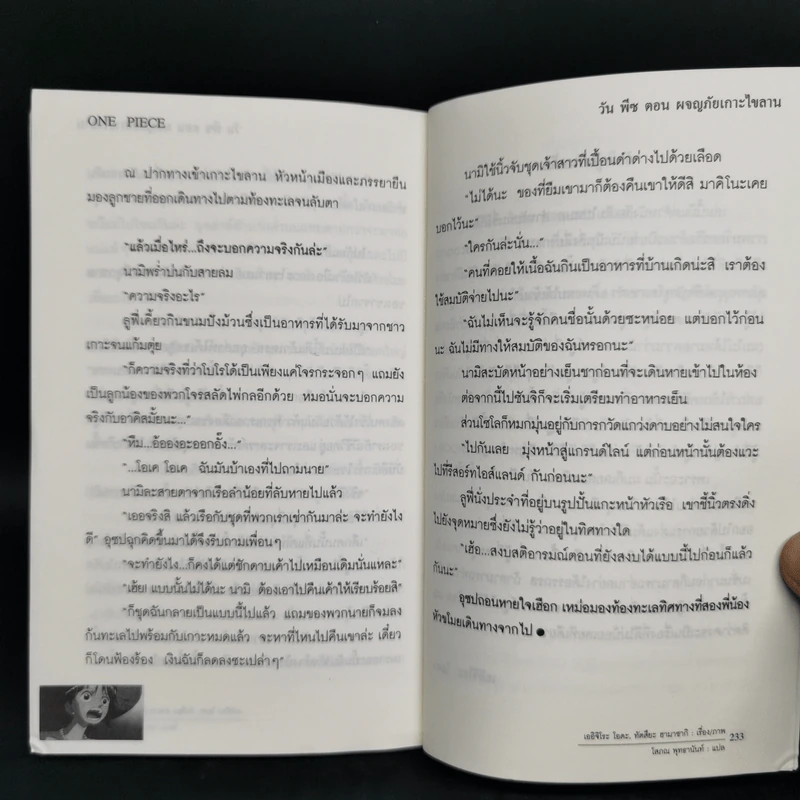 ONE PIECE
ณ ปากทางเข้าเกาะไขลาน หัวหน้าเมืองและภรรยายืน
มองลูกชายที่ออกเดินทางไปตามท้องทะเลจนลับตา
"แล้วเมื่อไหร่...ถึงจะบอกความจริงกันล่ะ"
นามิพร่ำบ่นกับสายลม
"ความจริงอะไร"
ลูฟี่เคี้ยวกินขนมปังม้วนซึ่งเป็นอาหารที่ได้รับมาจากชาว
เกาะจนแก้มตุ่ย
"ก็ความจริงที่ว่าโบโรโด้เป็นเพียงแค่โจรกระจอกๆ แถมยัง
เป็นลูกน้องของพวกโจรสลัดไพ่กลอีกด้วย หมอนั่นจะบอกความ
จริงกับอาคิสมั้ยนะ..."
"หืม...อ้อองอะออกอั๊ง..."
"...โอเค โอเค ฉันมันบ้าเองที่ไปถามนาย"
นามิละสายตาจากเรือลำน้อยที่ลับหายไปแล้ว
"เออจริงสิ แล้วเรือกับชุดที่พวกเราเช่ากันมาล่ะ จะทำยังไง
ดี" อุซปฉุกคิดขึ้นมาได้จึงรีบถามเพื่อนๆ
"จะทำยังไง...ก็คงได้แต่ชักดาบเค้าไปเหมือนเดิมนั่นแหละ"
"เฮ้ย! แบบนั้นไม่ได้นะ นามิ ต้องเอาไปคืนเค้าให้เรียบร้อยสิ"
"ก็ชุดฉันกลายเป็นแบบนี้ไปแล้ว แถมของพวกนายก็จมลง
ก้นทะเลไปพร้อมกับเกาะหมดแล้ว จะหาที่ไหนไปคืนเขาล่ะ เดี๋ยว
ก็โดนฟ้องร้อง เงินฉันก็ลดลงซะเปล่าๆ"
วัน พีซ ตอน ผจญภัยเกาะไขลาน
นามิใช้นิ้วจับชุดเจ้าสาวที่เปื้อนดำด่างไปด้วยเลือด
"ไม่ได้นะ ของที่ยืมเขามาก็ต้องคืนเขาให้ดีสิ มาคิโนะเคย
บอกไว้นะ"
"ใครกันล่ะนั่น..."
"คนที่คอยให้เนื้อฉันกินเป็นอาหารที่บ้านเกิดน่ะสิ เราต้อง
ใช้สมบัติจ่ายไปนะ"
"ฉันไม่เห็นจะรู้จักคนชื่อนั้นด้วยซะหน่อย แต่บอกไว้ก่อน
นะ ฉันไม่มีทางให้สมบัติของฉันหรอกนะ"
นามิสะบัดหน้าอย่างเย็นชาก่อนที่จะเดินหายเข้าไปในห้อง
ต่อจากนี้ไปซันจิก็จะเริ่มเตรียมทำอาหารเย็น
ส่วนโซโลก็หมกมุ่นอยู่กับการกวัดแกว่งดาบอย่างไม่สนใจใคร
"ไปกันเลย มุ่งหน้าสู่แกรนด์ไลน์ แต่ก่อนหน้านั้นต้องแวะ
ไปที่รีสอร์ทไอส์แลนด์ กันก่อนนะ"
ลูฟี่นั่งประจำที่อยู่บนรูปปั้นแกะหน้าหัวเรือ เขาชี้นิ้วตรงดิ่ง
ไปยังจุดหมายซึ่งยังไม่รู้ว่าอยู่ในทิศทางใด
"เฮ้อ...สงบสติอารมณ์ตอนที่ยังสงบได้แบบนี้ไปก่อนก็แล้ว
กันนะ"
อุซปถอนหายใจเฮือก เหม่อมองท้องทะเลทิศทางที่สองพี่น้อง
หัวขโมยเดินทางจากไป ●
เออิจิโระ โอดะ, ทัตสึยะ ฮามาซากิ : เรื่อง/ภาพ
โสภณ พุทธานันท์ : แปล
233